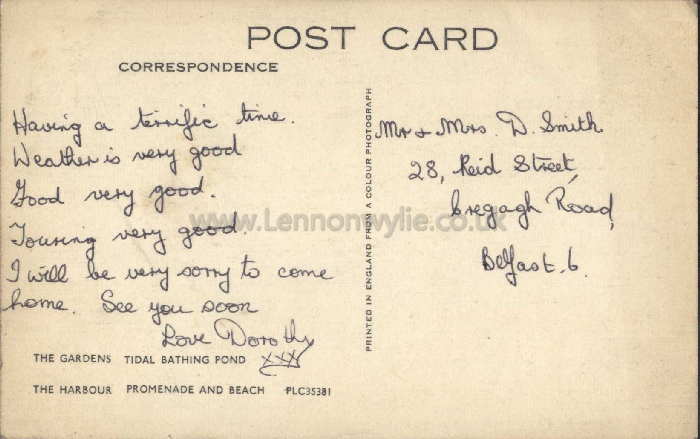 POST CARD
CORRESPONDENCE
Having a terrific time.
Weather is very good
Food very good.
Touring very good.
I will be very sorry to come
home. See you soon
Love Dorothy
xxx
THE GARDENS TIDAL BATHING POND
THE HARBOUR PROMENADE AND BEACH PLC35381
PRINTED IN ENGLAND FROM A COLOUR PHOTOGRAPH
Mr & Mrs. D. Smith
28, Reid Street,
Cregagh Road,
Belfast. 6.
www.Lennonwylie.co.uk